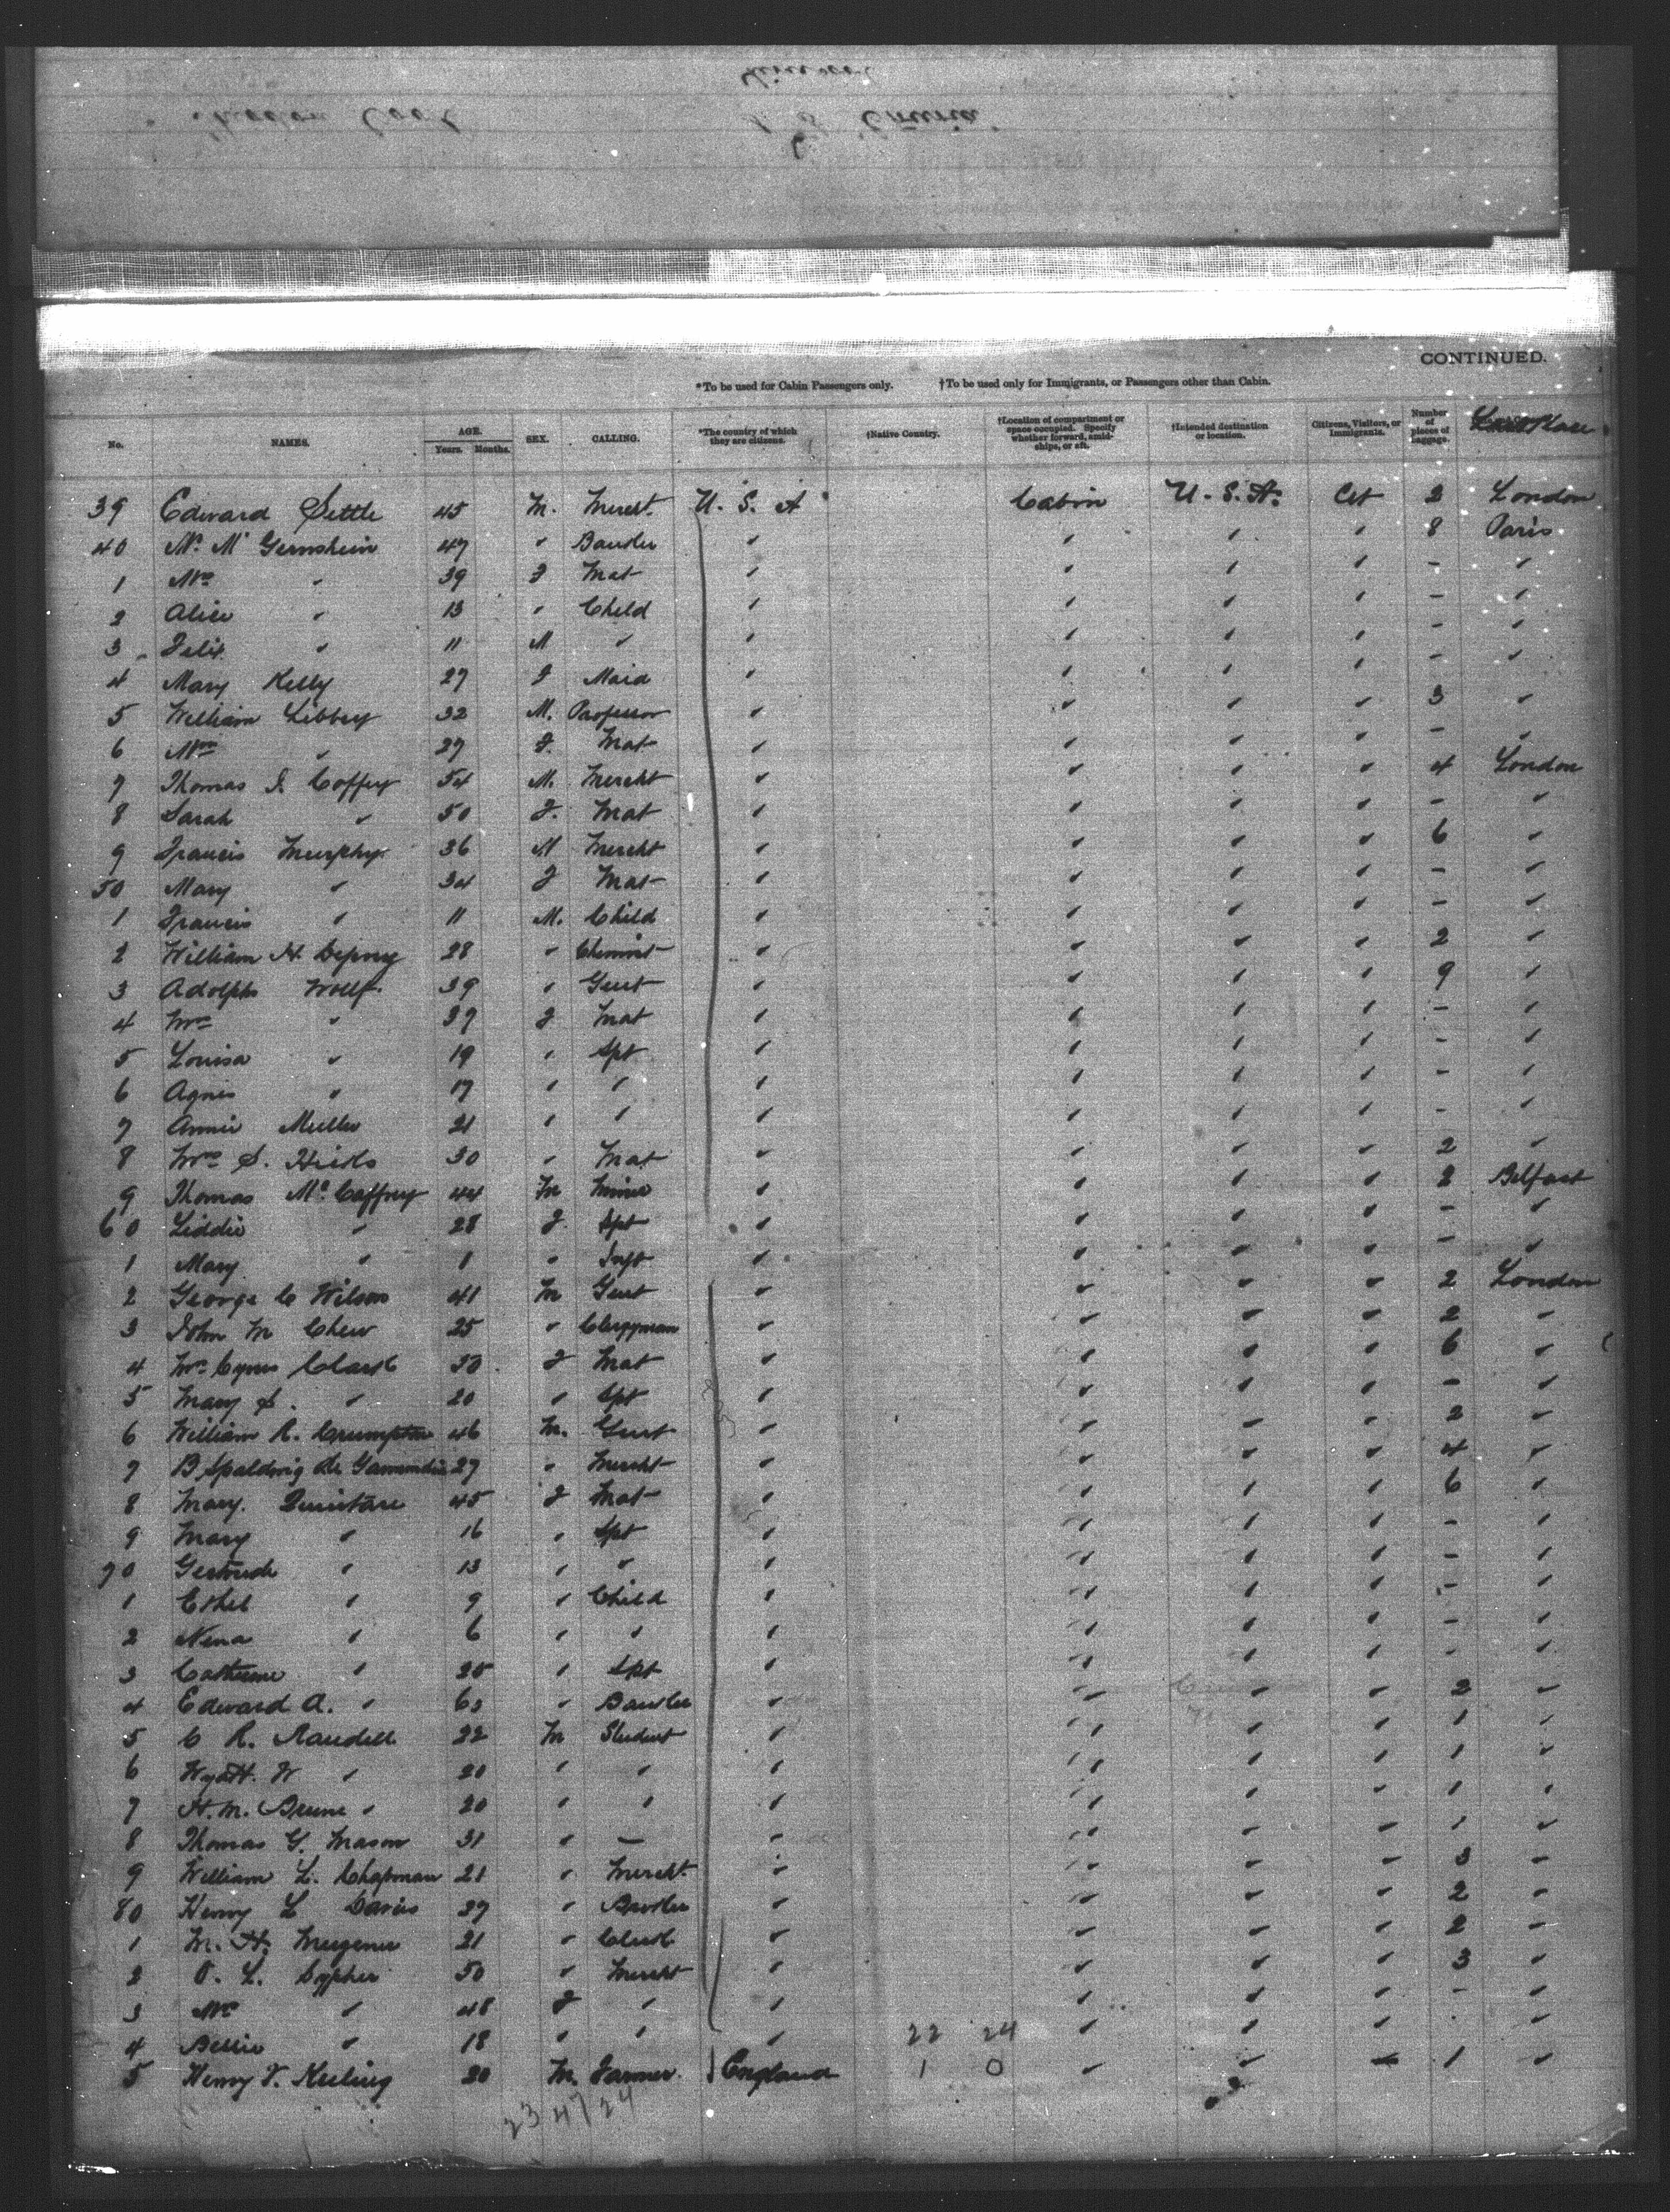 CONTINUED.
*To be used for Cabin Passengers only. †To be used only for Immigrants, or Passengers other than Cabin.
No. NAMES. AGE. Years. Months. SEX. CALLING. *The country of which they are citizens. †Native Country. †Location of compartment or space occupied. Specify whether forward, amidships, or aft. †Intended destination or location. Citizens, Visitors, or Immigrants. Number of pieces of baggage.
39 Edward Settle 45 M. Mercht. U. S. A Cabin U. S. A. Cit 2 London
40 Mr M Gernshein 47 " Banker " " " " 8 Paris
1 Mrs " 39 F Mat " " " " - "
2 Alice " 13 " Child " " " " - "
3 Felix " 11 M " " " " " - "
4 Mary Kelly 27 F Maid " " " " - "
5 William Libbey 32 M. Professor " " " " 3 "
6 Mrs " 27 F. Mat " " " " - "
7 Thomas J. Coffey 54 M. Mercht " " " " 4 London
8 Sarah " 50 F. Mat " " " " - "
9 Francis Murphy 36 M Mercht " " " " 6 "
50 Mary " 34 F Mat " " " " - "
1 Francis " 11 M. Child " " " " - "
2 William H 28 " Chemist " " " " 2 "
3 Adolph Wolff 39 " Gent " " " " 9 "
4 Mrs " 37 F Mat " " " " - "
5 Louisa " 19 " Spt " " " " - "
6 Agnes " 17 " " " " " " - "
7 Annie Muller 21 " " " " " " - "
8 Mrs S. Hicks 30 " Mat " " " " 2 "
9 Thomas McCaffrey 44 M Miner " " " " 2 Belfast
60 Liddie " 28 F Spt " " " " - "
1 Mary " 1 " Inft " " " " - "
2 George C Wilson 41 M Gent " " " " 2 London
3 John M Chew 25 " Clergyman " " " " 2 "
4 Mrs Cyrus Clark 50 F Mat " " " " 6 "
5 Mary S. " 20 " Spt " " " " - "
6 William R. Crumpton 46 M. Gent " " " " 2 "
7 B Spalding de 27 " Mercht " " " " 4 "
8 Mary. Quintard 45 F Mat " " " " 6 "
9 Mary " 16 " Spt " " " " - "
70 Gertrude " 13 " " " " " " - "
1 Ethel " 9 " Child " " " " - "
2 Nena " 6 " " " " " " - "
3 Catherine " 25 " Spt " " " " - "
4 Edward A. " 63 " Banker " " " " 2 "
5 C R. Randell 22 M Student " " " " 1 "
6 Wyatt. W " 20 " " " " " " 1 "
7 H. M. Brune " 20 " " " " " " 1 "
8 Thomas G. Mason 31 " - " " " " 1 "
9 William L. Chapman 21 " Mercht. " " " " 3 "
80 Henry L Davies 37 " Broker " " " " 2 "
1 M. H. 21 " Clerk " " " " 2 "
2 O. L. Cypher 50 " Mercht " " " " 3 "
3 Mrs " 48 F " " " " " - "
4 Bellie " 18 " " " 22 24 " " " "
5 Henry T. Keeling 20 M. Farmer. England 1 0 " " 1 "
23 47 24